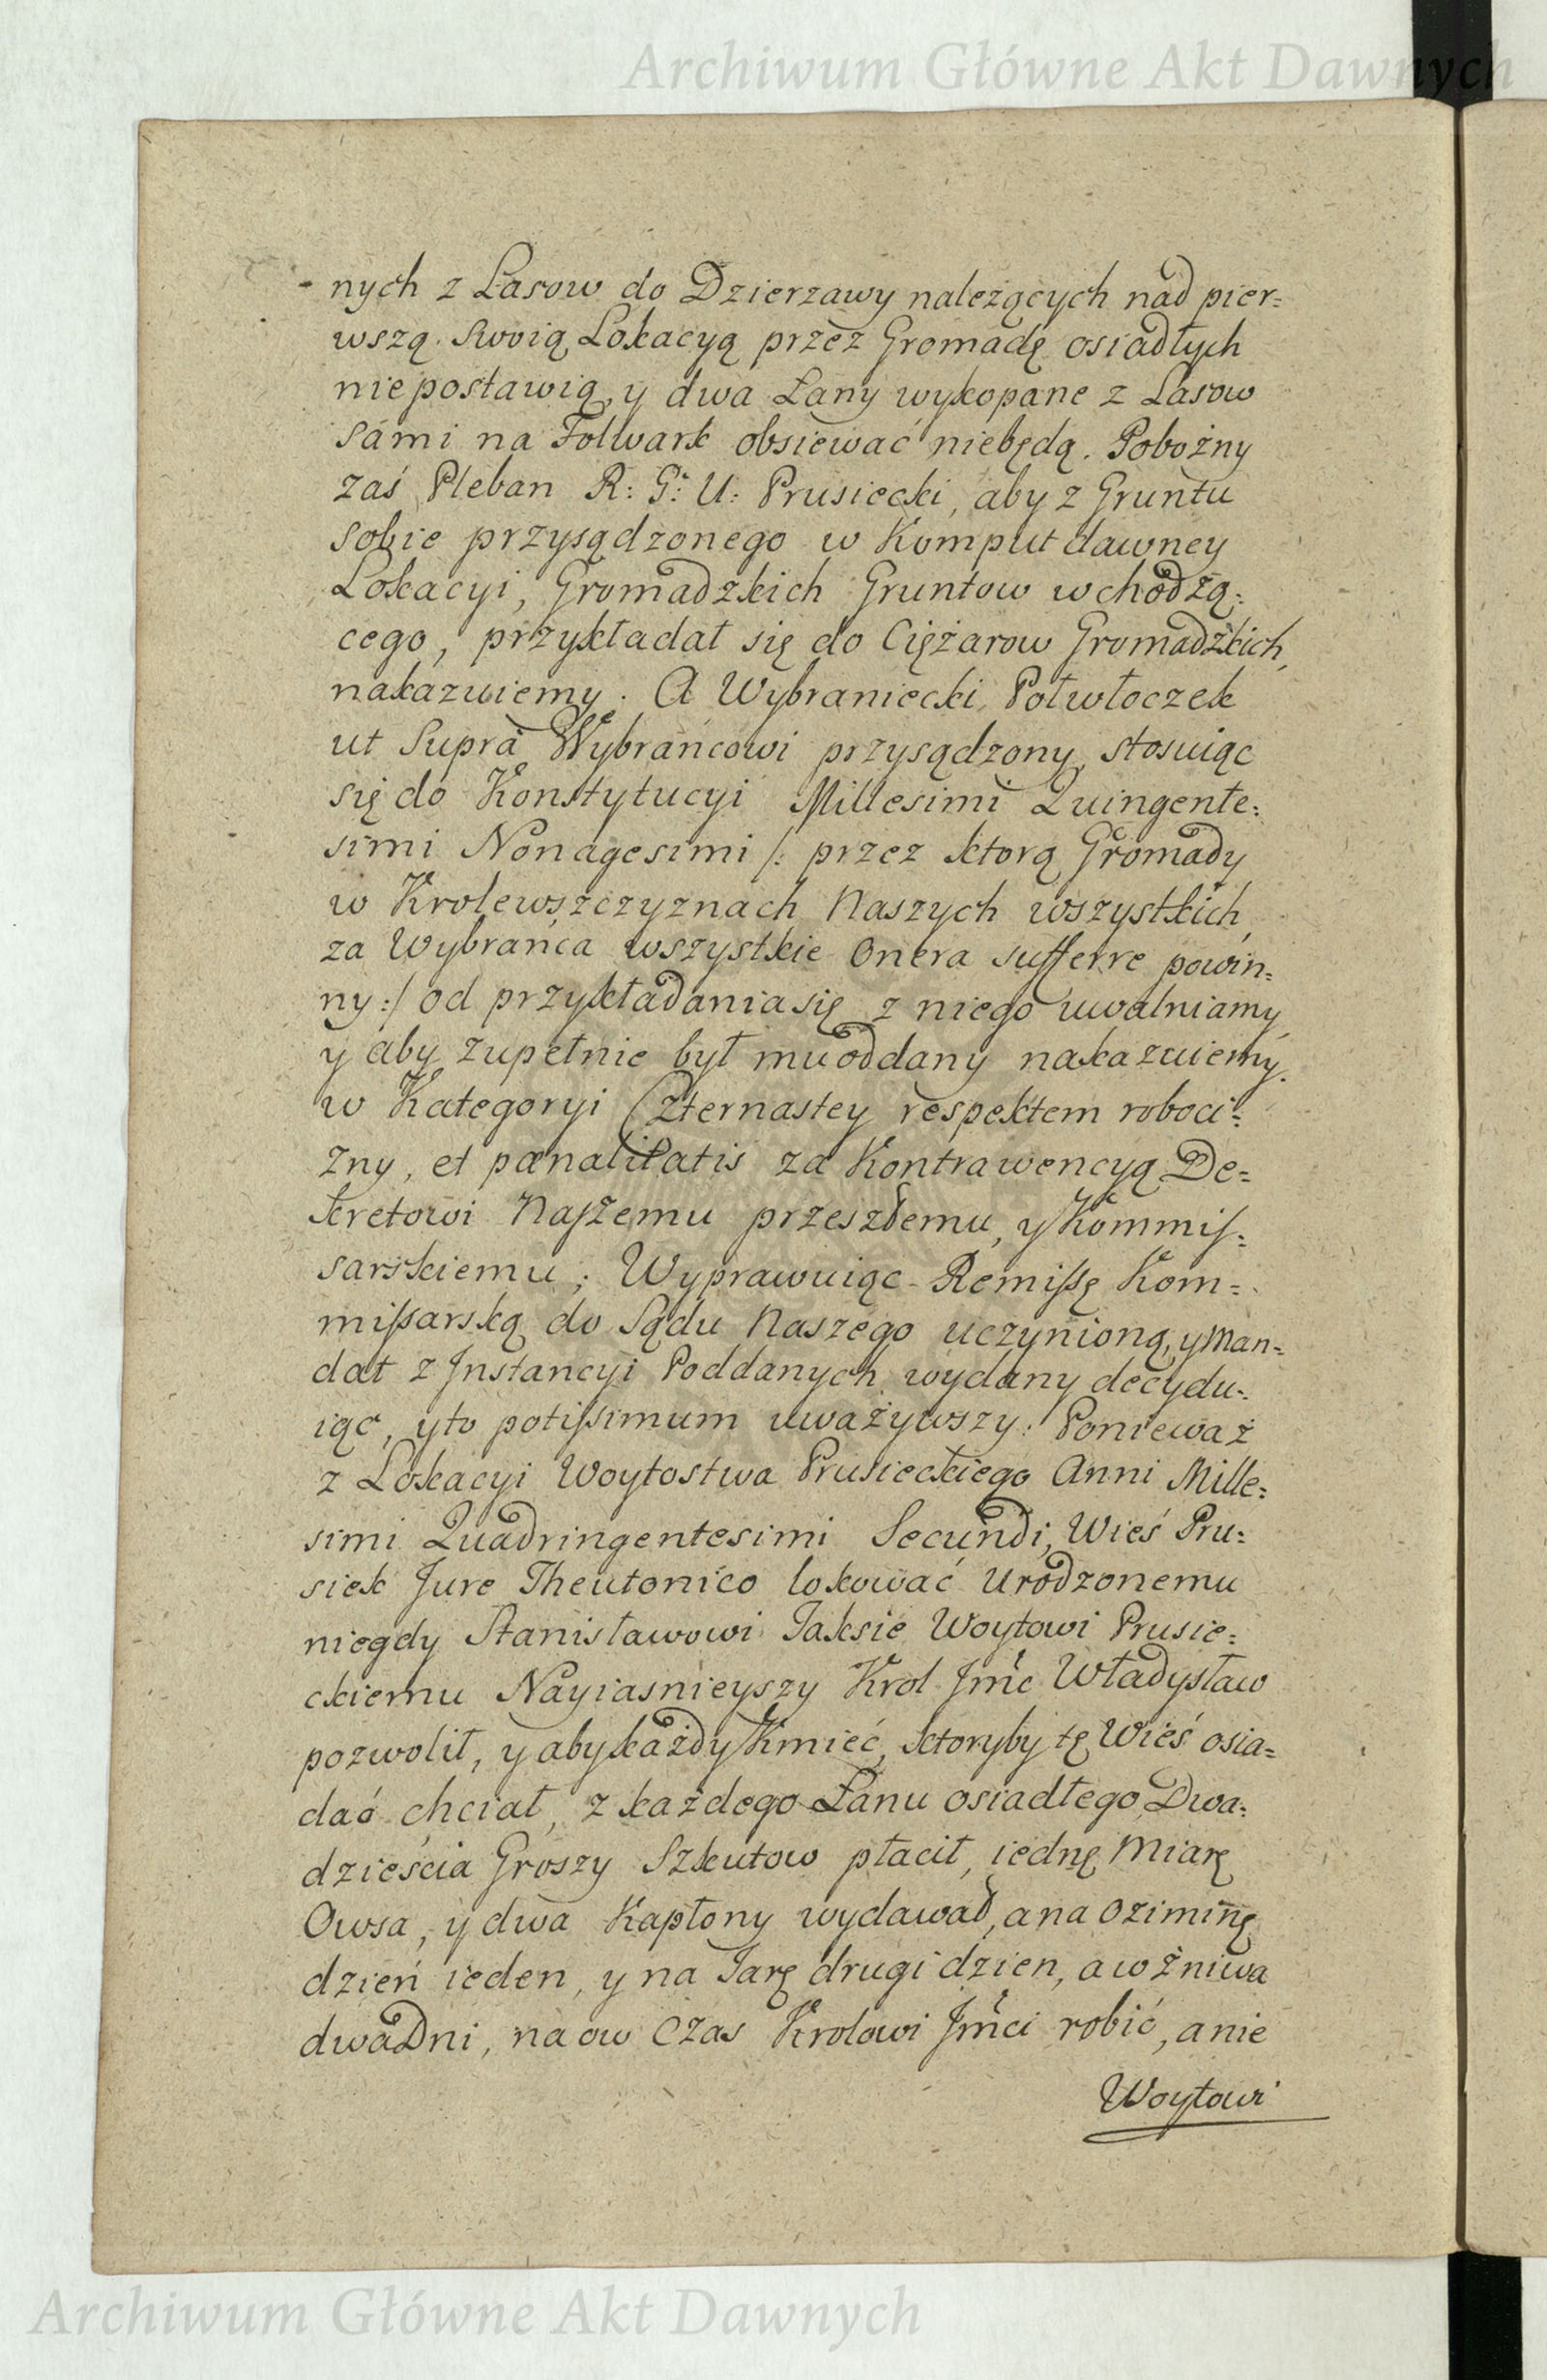 Archiwum Główne Akt Dawnych
nych z Lasow do Dzierzawy należących nad pier=
wszą swoią Lokacyą przez Gromadę osiadłych
niepostawią, y dwa Łany wykopane z Lasow
sámi na Folwark obsiewać niebędą. Pobożny
zaś Pleban R: G: U: Prusiecki, aby z Gruntu
sobie przysądzonego w Komput dawney
Lokacyi, Gromadzkich Gruntow wchodzą=
cego, przykładał się do Ciężarow Gromadzkich,
nakazuiemy. A Wybraniecki Połwłoczek
ut Supra Wybrańcowi przysądzony, stosuiąc
się do Konstytucyi Millesimi Quingente=
simi Nonagesimi /: przez ktorą Gromady
w Krolewszczyznach Naszych wszystkich,
za Wybrańca wszystkie Onera sufferre powin=
ny :/ od przykładania się z niego uwalniamy,
y aby zupełnie był mu oddany nakazuiemy.
w Kategoryi Czternastey respektem roboci=
zny, et pœnalitatis za Kontrawencyą De=
kretowi Naszemu przeszłemu, y Kommis=
sarskiemu; Wyprawuiąc Remissę Kom=
missarską do Sądu Naszego uczynioną, y Man=
dat z Instancyi Poddanych wydany decydu=
iąc, y to potissimum uważywszy: Ponieważ
z Lokacyi Woytostwa Prusieckiego Anni Mille=
simi Quadringentesimi Secundi, Wieś Pru=
siek Jure Theutonico lokować Urodzonemu
niegdy Stanisławowi Jaksie Woytowi Prusie=
ckiemu Nayiasnieyszy Krol Jmć Władysław
pozwolił, y aby każdy Kmieć, ktoryby tę Wieś osia=
dać chciał, z każdego Łanu osiadłego Dwa=
dzieścia Groszy Szkutow płacił, iednę Miarę
Owsa, y dwa Kapłony wydawał, a na Oziminę
dzień ieden, y na Jarę drugi dzien, a w żniwa
dwa Dni, na ow Czas Krolowi Jmći robić, a nie
Woytowi
Archiwum Główne Akt Dawnych